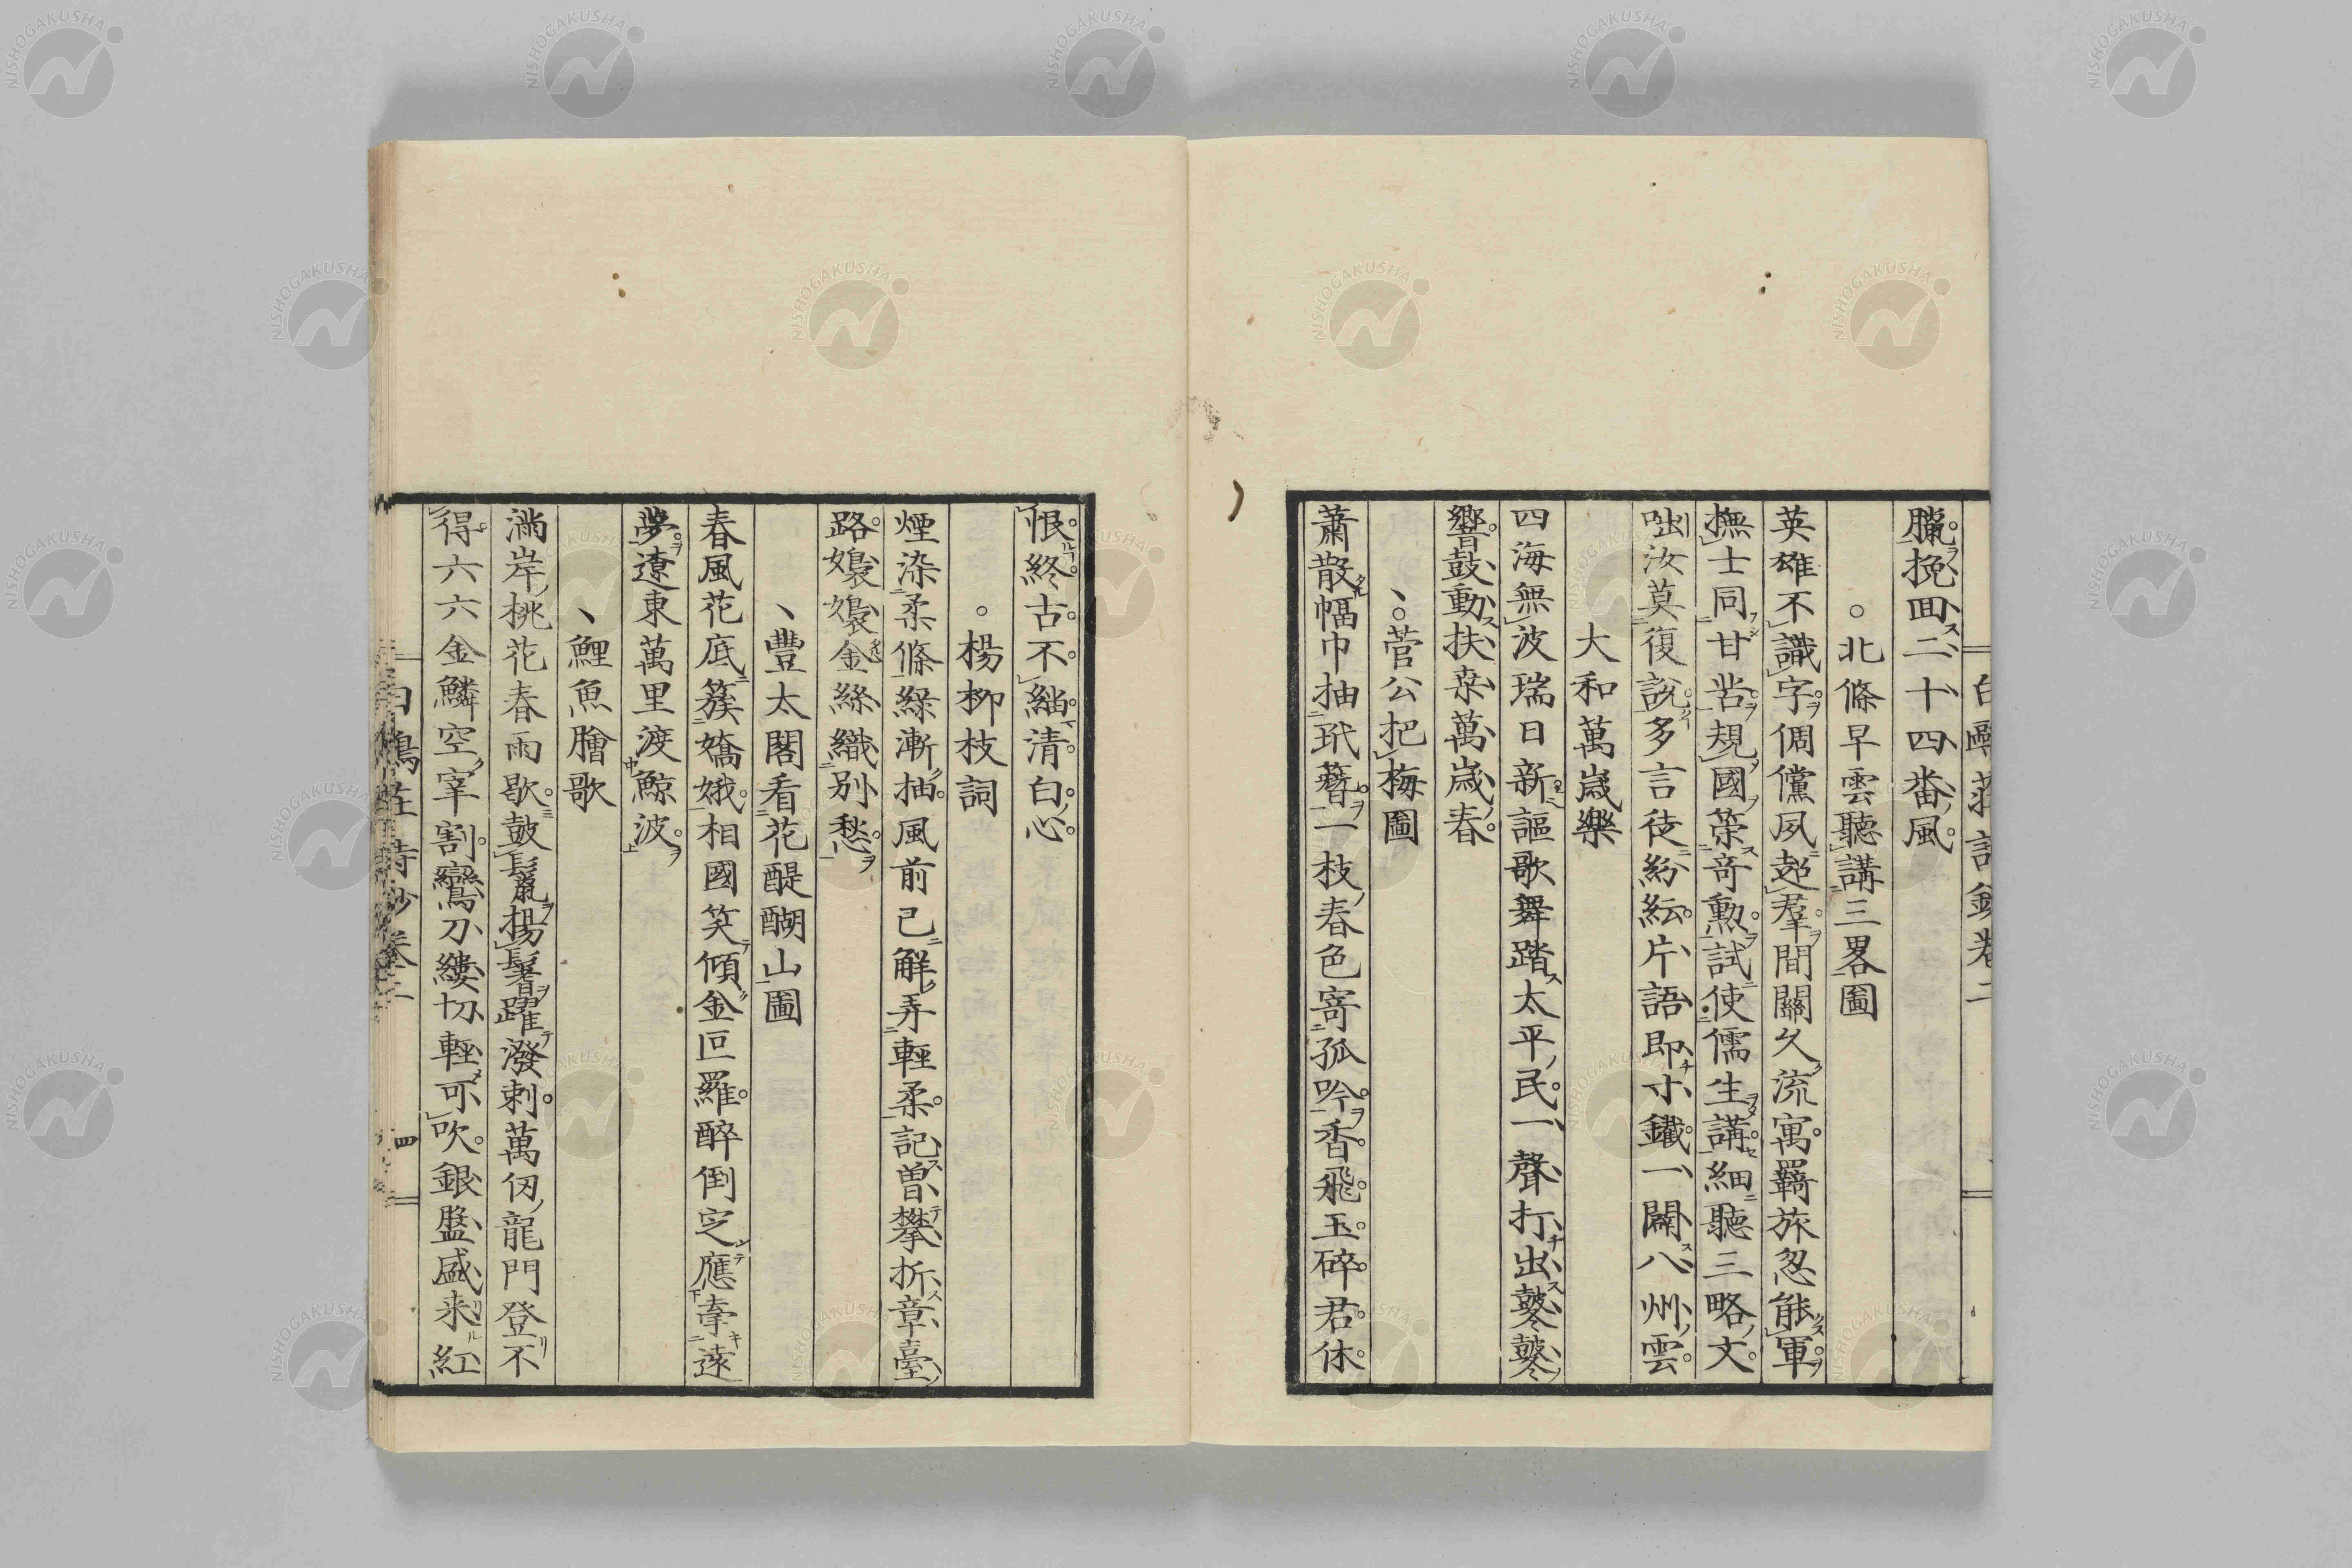 臘挽回二十四番風
北條早雲聽講三畧圖
英雄不識字倜儻夙超羣間關久流寓羇旅忽能軍
撫士同甘苦規國策奇勳試使儒生講細聽三略文
咄汝莫復說多言徒紛紜片語即寸鐵一闢八州雲
大和萬歳樂
四海無波瑞日新謳歌舞踏太平民一聲打出鼕鼕
響鼓動扶桒萬歳春
菅公把梅圖
蕭散幅巾抽玳簪一枝春色寄孤吟香飛玉碎君休
恨終古不緇清白心
楊柳枝詞
煙染柔條綠漸抽風前已解弄輕柔記曽攀折章臺
路嫋嫋金絲織別愁
豐太閤看花醍醐山圖
春風花底簇嬌娥相國笑傾金叵羅醉倒定應牽遠
夢遼東萬里渡鯨波
鯉魚膾歌
滿岸桃花春雨歇鼓鬣揚鬐躍潑剌萬仞龍門登不
得六六金鱗空宰割鸞刀縷切輕可吹銀盤盛来紅
白鷗莊詩鈔卷二
四
NISHOGAKUSHA